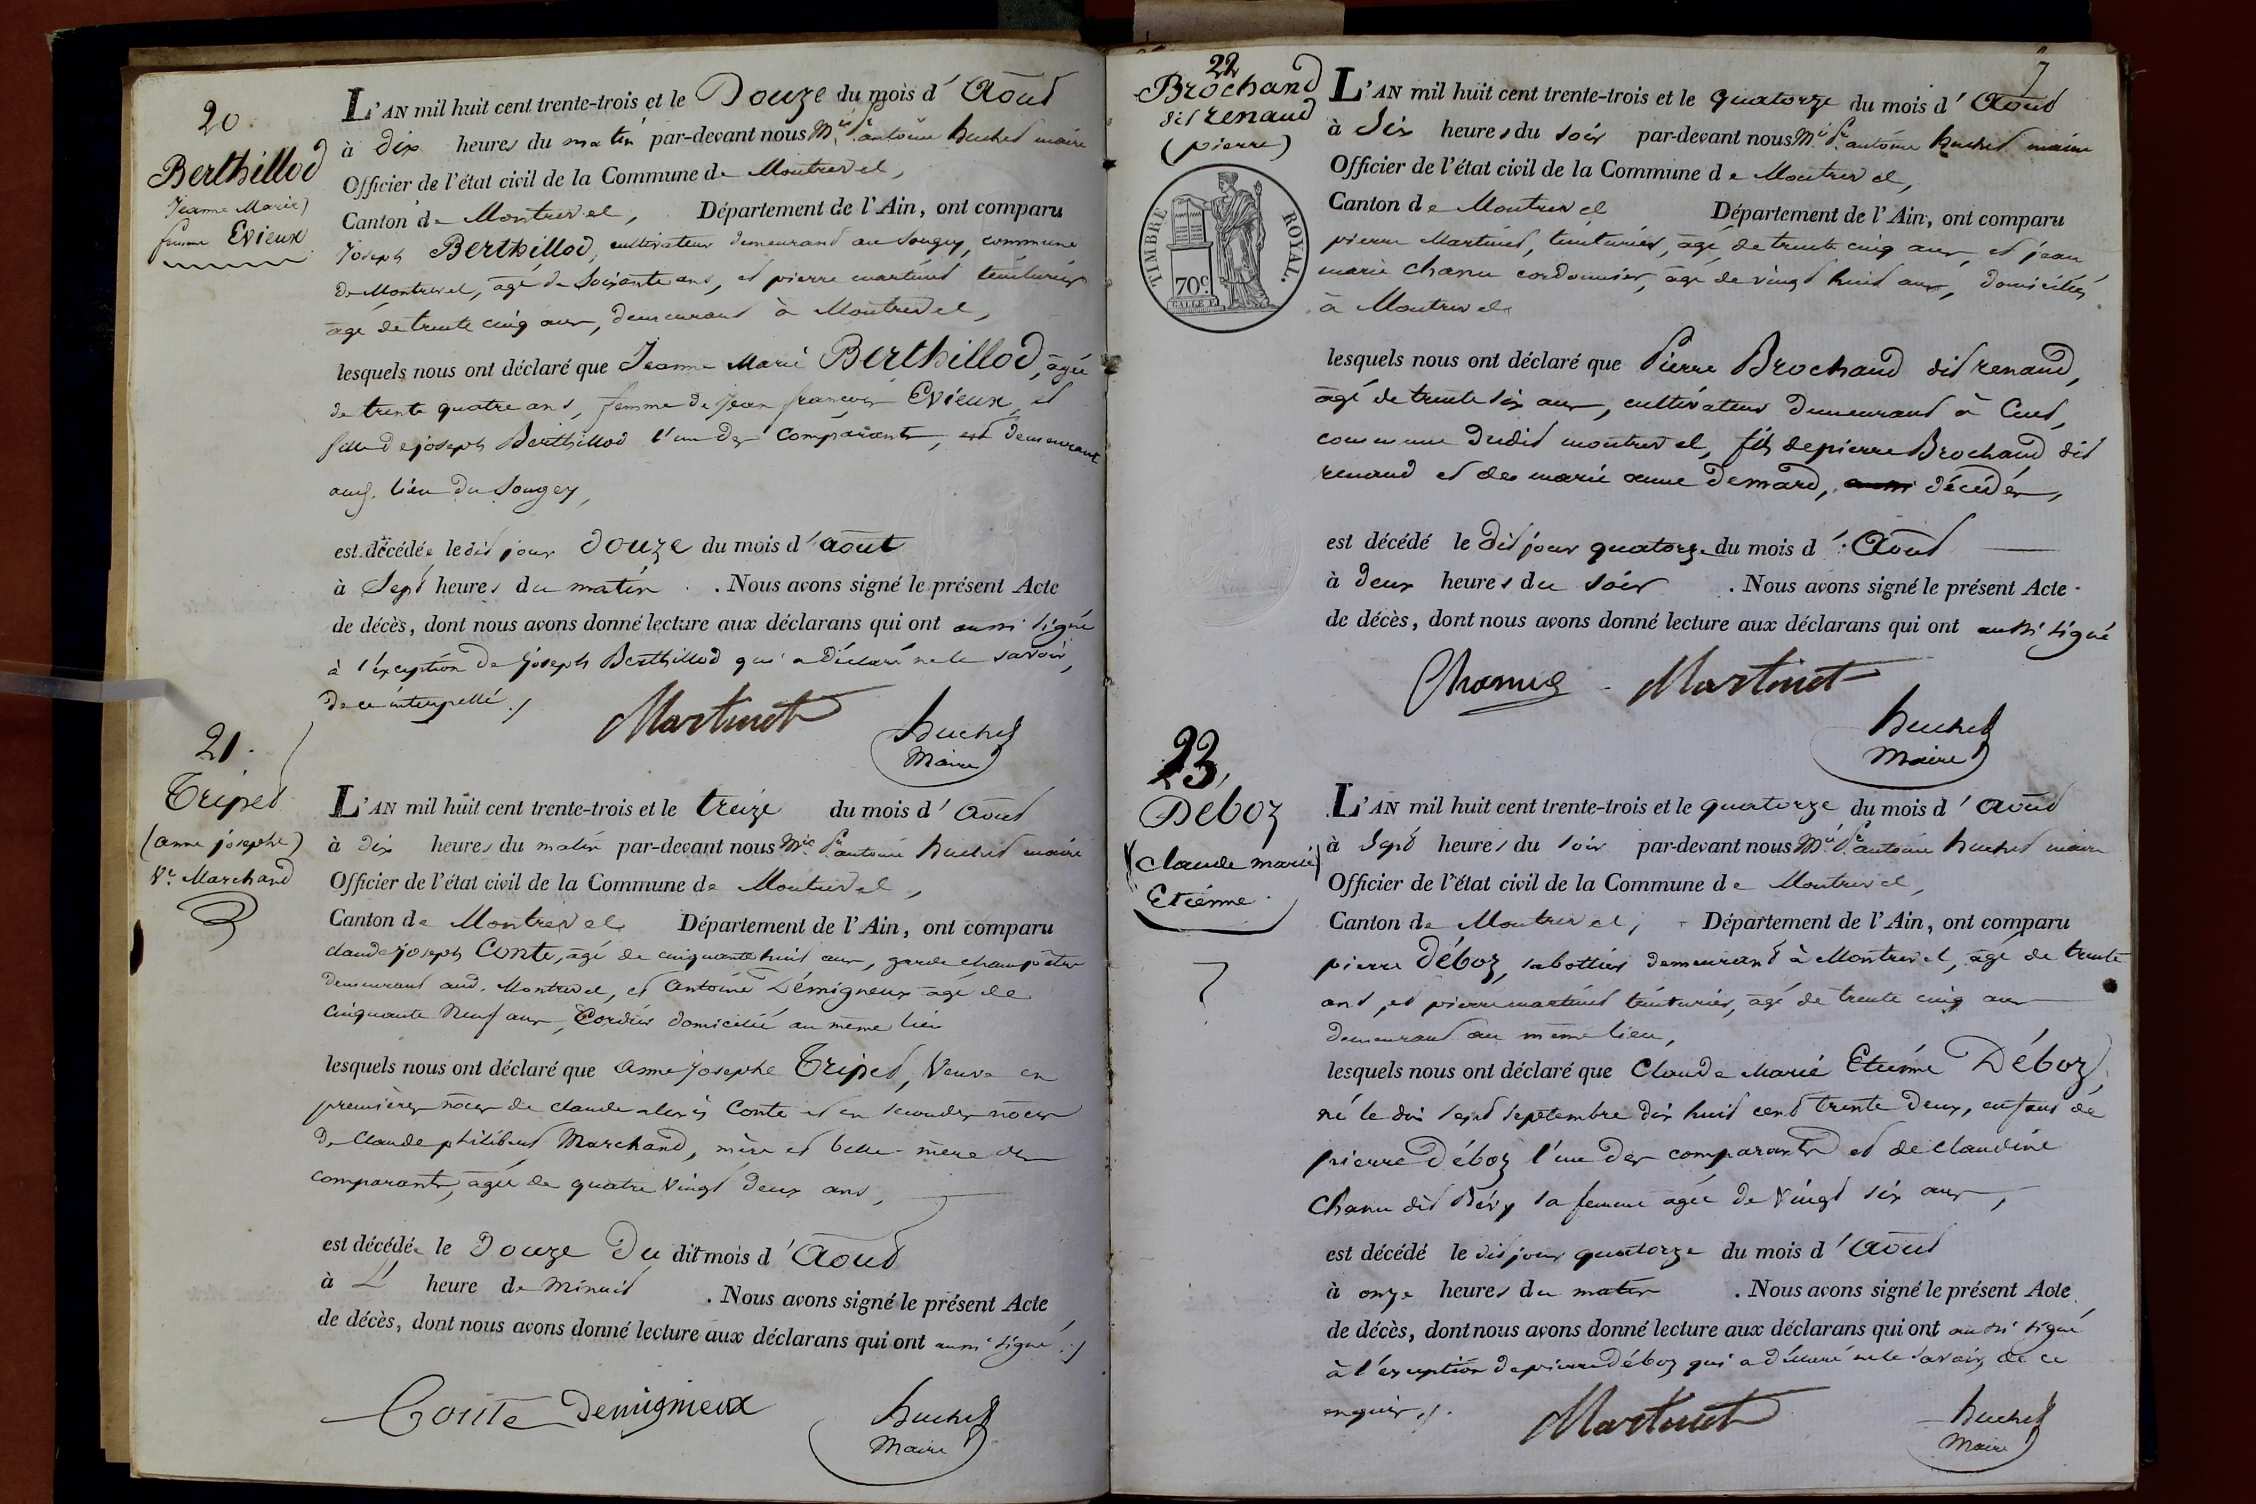 20.
Berthillod
Jeanne Marie
femme Evieux
L'AN mil huit cent trente-trois et le Douze du mois d'Aoud
à dix heures du matin par-devant nous Mie Pre antoine huchet maire
Officier de l'état civil de la Commune de Montrevel,
Canton de Montrevel, Département de l'Ain, ont comparu
Joseph Berthillod, cultivateur demeurand au Sougey, commune
de Montrevel, agé de Soixante ans, et pierre martinet teinturier
age de trente cinq ans, demeurand à Montrevel,
lesquels nous ont déclaré que Jeanne Marie Berthillod, agée
de trente quatre ans, femme de Jean françois Evieux, et
fille de joseph Berthillod l'un des comparants, demeurant
aud. lieu du Sougey,
est décédée le dit jour douze du mois d'aout
à Sept heures du matin. Nous avons signé le présent Acte
de décès, dont nous avons donné lecture aux déclarans qui ont aussi signé
à l'exception de joseph Berthillod qui a déclaré ne le savoir,
de ce interpellé ./
Martinet
huchet
Maire
21.
Tripet
(anne josephe)
Ve Marchand
L'AN mil huit cent trente-trois et le treize du mois d'Aoud
à dix heures du matin par-devant nous Mie Pre antoine huchet maire
Officier de l'état civil de la Commune de Montrevel,
Canton de Montrevel Département de l'Ain, ont comparu
claude joseph Conte, agé de cinquante huit ans, garde champêtre
demeurand aud. Montrevel, et antoine Démigneux agé de
cinquante Neuf ans, Cordier domicilié au même lieu
lesquels nous ont déclaré que anne josephe Tripet, Veuve en
premières noces de claude alexis Conte et en secondes noces
de Claude philibert Marchand, mère et belle-mère des
comparants, agée de quatre vingt deux ans,
est décédée le Douze Du dit mois d'Aoud
à L' heure de minuit. Nous avons signé le présent Acte
de décès, dont nous avons donné lecture aux déclarans qui ont aussi signé ./
Conte Demigneux
huchet
Maire
7
22
Brochand
dit renaud
(pierre)
TIMBRE ROYAL.
70c
L'AN mil huit cent trente-trois et le quatorze du mois d'Aoud
à Six heures du soir par-devant nous Mie Pre antoine huchet maire
Officier de l'état civil de la Commune de Montrevel,
Canton de Montrevel Département de l'Ain, ont comparu
pierre Martinet, teinturier, agé de trente cinq ans, et jean
marie chanu cordonnier, agé de vingt huit ans, domiciliés
à Montrevel
lesquels nous ont déclaré que Pierre Brochand dit renaud,
agé de trente six ans, cultivateur demeurand à Cuet,
commune dudit montrevel, fils de pierre Brochand dit
renaud et de marie anne Demard, décédés,
est décédé le dit jour quatorze du mois d'Aoud
à deux heures du soir. Nous avons signé le présent Acte
de décès, dont nous avons donné lecture aux déclarans qui ont aussi signé
Martinet
huchet
Maire
23,
Deboz
(claude marie)
Etiénne
L'AN mil huit cent trente-trois et le quatorze du mois d'Aoud
à Sept heures du soir par-devant nous Mie Pre antoine huchet maire
Officier de l'état civil de la Commune de Montrevel,
Canton de Montrevel, Département de l'Ain, ont comparu
pierre Déboz, sabottier demeurand à Montrevel, agé de trente
ans, et pierre martinet teinturier, agé de trente cinq ans
demeurand au même lieu,
lesquels nous ont déclaré que Claude Marie Etiénne Déboz,
né le dix sept septembre dix huit cent trente deux, enfant de
pierre Déboz l'un des comparants et de claudine
Chanu dit Bévy sa femme agée de vingt six ans,
est décédé le dit jour quatorze du mois d'Aoud
à onze heures du matin. Nous avons signé le présent Acte
de décès, dont nous avons donné lecture aux déclarans qui ont aussi signé
à l'exception de pierre Déboz qui a déclaré ne le savoir, de ce
enquis ./.
Martinet
huchet
Maire